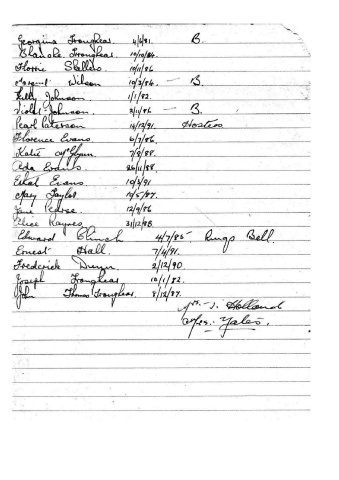 Georgina Troughear. 4/4/91. B.
Troughear. 10/10/84.
Florrie 10/11/86
Margaret Wilson 10/3/86 — B.
Johnson. 1/1/82.
Violet Johnson. 2/11/86 — B.
Pearl Paterson 16/12/91. Hostess
Florence Evans. 6/7/86.
Katie McGlynn 7/8/88.
Ada Evans. 26/11/88.
Ethel Evans. 10/3/91
Mary Taylor 19/5/87.
Jane Pearse 12/9/86
Alice Raynes 31/12/98
Edward 4/7/85 Rings Bell.
Ernest Hall. 7/4/91.
Frederick 2/12/90.
Joseph Troughear 10/1/82.
John Thomas Troughear. 8/12/87.
Mr. J. Holland
Mrs. Yales.